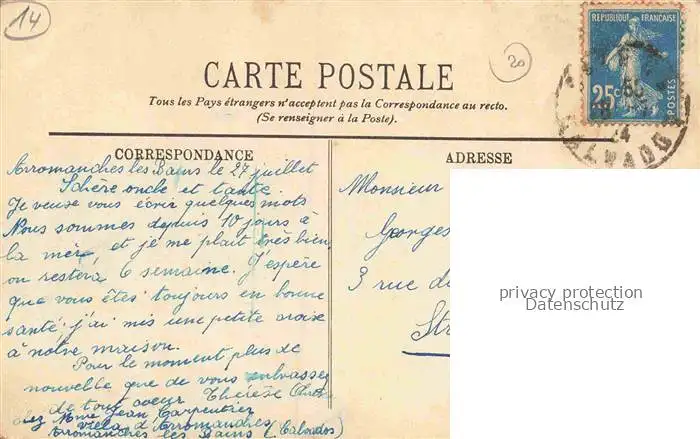 14
20
RÉPUBLIQUE FRANÇAISE
25c
POSTES
14
CALVADOS
CARTE POSTALE
Tous les Pays étrangers n'acceptent pas la Correspondance au recto.
(Se renseigner à la Poste).
CORRESPONDANCE
Arromanches les Bains le 27 juillet
Schère oncle et tante.
Je veuse vous écrir quelques mots
Nous sommes depuis 10 jours à
la mèr, et je me plait très bien,
on restera 6 semaine. J'espère
que vous êtes toujours en bonne
santé; j'ai mis une petite croix
à notre maison.
Pour le moment plus de
nouvelle que de vous embrasser
de tout coeur Thérèse
chez Mme Jean Carpentier
villa d'Arromanches
Arromanches les Bains (Calvados)
ADRESSE
Monsieur
Georges
3 rue d
Str
privacy protection
Datenschutz